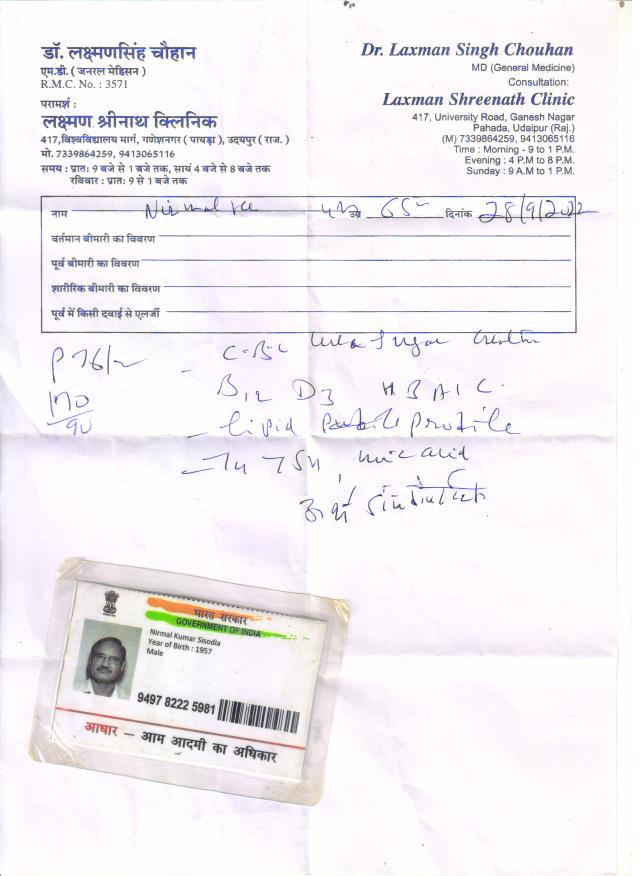 डॉ. लक्ष्मणसिंह चौहान
एम.डी. ( जनरल मेडिसन )
R.M.C. No. : 3571
परामर्श :
लक्ष्मण श्रीनाथ क्लिनिक
417,विश्वविद्यालय मार्ग, गणेशनगर ( पायड़ा ), उदयपुर ( राज. )
मो. 7339864259, 9413065116
समय : प्रातः 9 बजे से 1 बजे तक, सायं 4 बजे से 8 बजे तक
रविवार : प्रातः 9 से 1 बजे तक
Dr. Laxman Singh Chouhan
MD (General Medicine)
Consultation:
Laxman Shreenath Clinic
417, University Road, Ganesh Nagar
Pahada, Udaipur (Raj.)
(M) 7339864259, 9413065116
Time : Morning - 9 to 1 P.M.
Evening : 4 P.M to 8 P.M.
Sunday : 9 A.M to 1 P.M.
नाम Nirmal उम्र 65 दिनांक 28/9/2022
वर्तमान बीमारी का विवरण
पूर्व बीमारी का विवरण
शारीरिक बीमारी का विवरण
पूर्व में किसी दवाई से एलर्जी
P 76/- - C.B.C Urea Sugar
170/90 B12 D3 HBA1C
- lipid profile
- T4 TSH uric acid
भारत सरकार
GOVERNMENT OF INDIA
Nirmal Kumar Sisodia
Year of Birth : 1957
Male
9497 8222 5981
आधार — आम आदमी का अधिकार